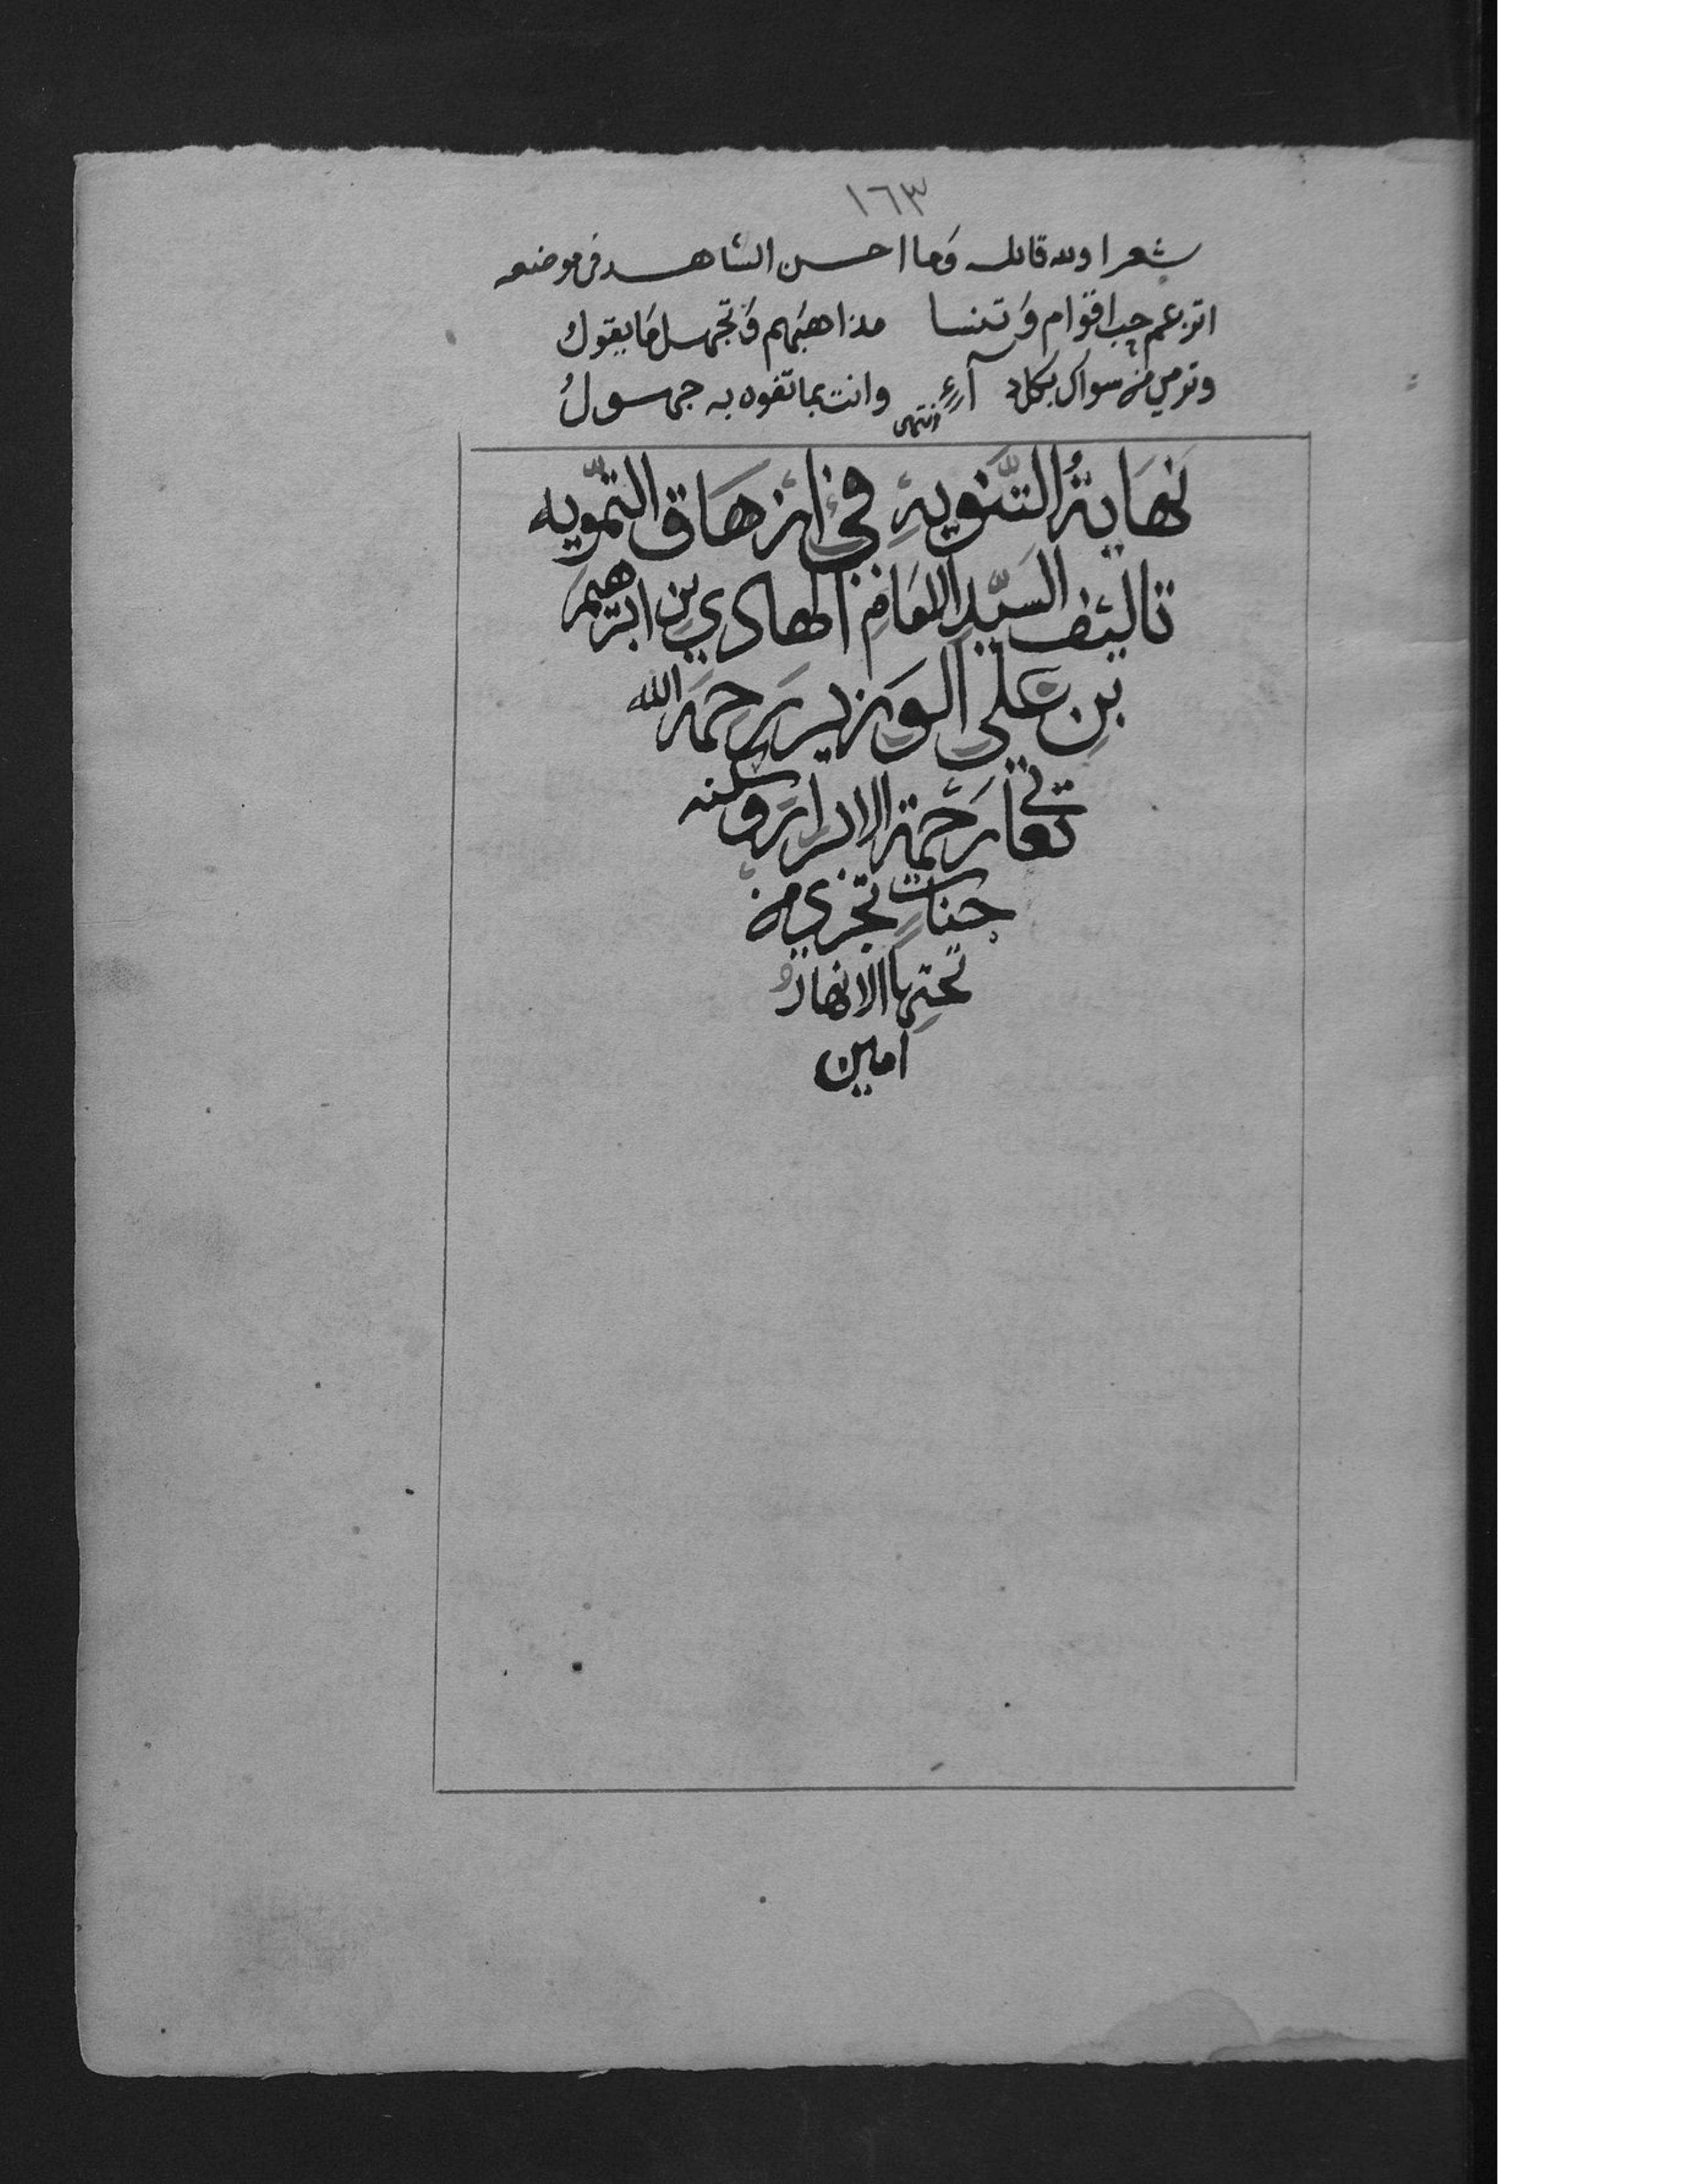 ١٦٣
شعرا ولله قائله وما احسن الشاهد في موضعه
اتزعم حب اقوام وتنسا مذاهبهم وتجهل ما يقول
وترمي من سواك بكل آرء وانت بما تفوه به جهول
انتهى
نهاية التنويه في ازهاق التمويه
تاليف السيد الامام الهادي بن ابرهيم
بن علي الوزير رحمه الله
تعالى رحمة الابرار وسكنه
جنات تجري من
تحتها الانهار
امين